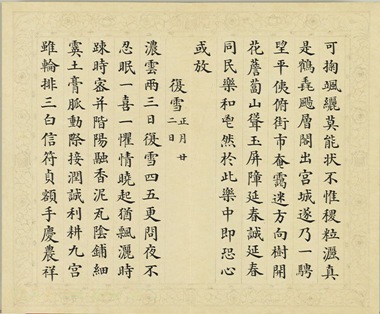 可掬颯纚莫能狀不惟稷粒灑真
是鶴毳飏層閣出宮城遂乃一騁
望平俠俯街市奄靄迷方向樹開
花薝蔔山聳玉屏障延春誠延春
同民樂和然於此樂中即恐心
或放
復雪 正月廿二日
濃雲兩三日復雪四五更問夜不
忍眠一喜一懼情曉起猶飄灑時
疎時密并階陽融香泥瓦陰鋪細
霙土膏脈動際接潤誠利耕九宮
雖輪排三白信符貞額手慶農祥